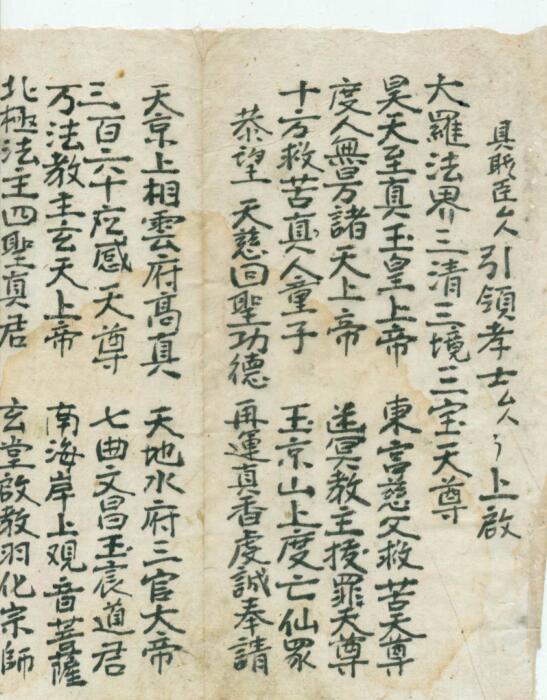 具职臣厶人引領孝士厶人丨上啟
大羅法界三清三境三宝天尊
昊天至真玉皇上帝 東宫慈父救苦天尊
度人無量諸天上帝 迷冥教主拔罪天尊
十方救苦真人童子 玉京山上度亡仙眾
恭望 天慈回聖功德 再運真香虔誠奉請
天京上相雲府高真 天地水府三官大帝
三百六十应感天尊 七曲文昌玉宸道君
万法教主玄天上帝 南海岸上观音菩薩
北極法主四聖真君 玄堂啟教羽化宗師